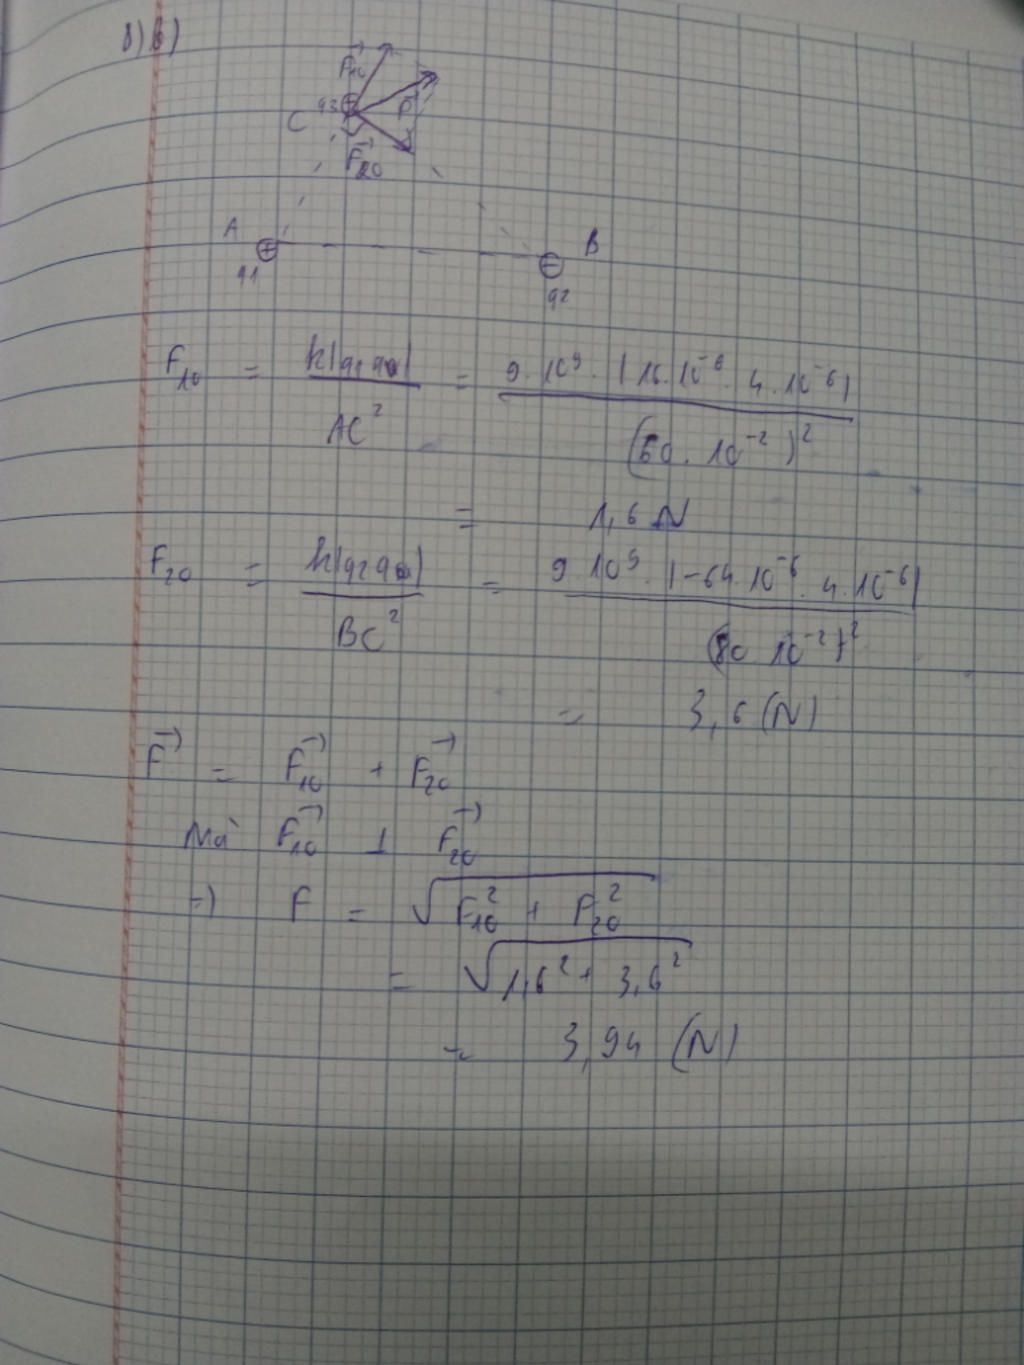 8) b)
F⃗₁₀
q3
C
F⃗
F⃗₂₀
A
B
q1
q2
F₁₀ = k|q1q0| / AC² = 9.10⁹.|16.10⁻⁶.4.10⁻⁶| / (60.10⁻²)²
= 1,6 N
F₂₀ = k|q2q0| / BC² = 9.10⁹.|-64.10⁻⁶.4.10⁻⁶| / (80 10⁻²)²
= 3,6 (N)
F⃗ = F⃗₁₀ + F⃗₂₀
Mà F⃗₁₀ ⊥ F⃗₂₀
=) F = √(F₁₀² + F₂₀²)
= √(1,6² + 3,6²)
~ 3,94 (N)